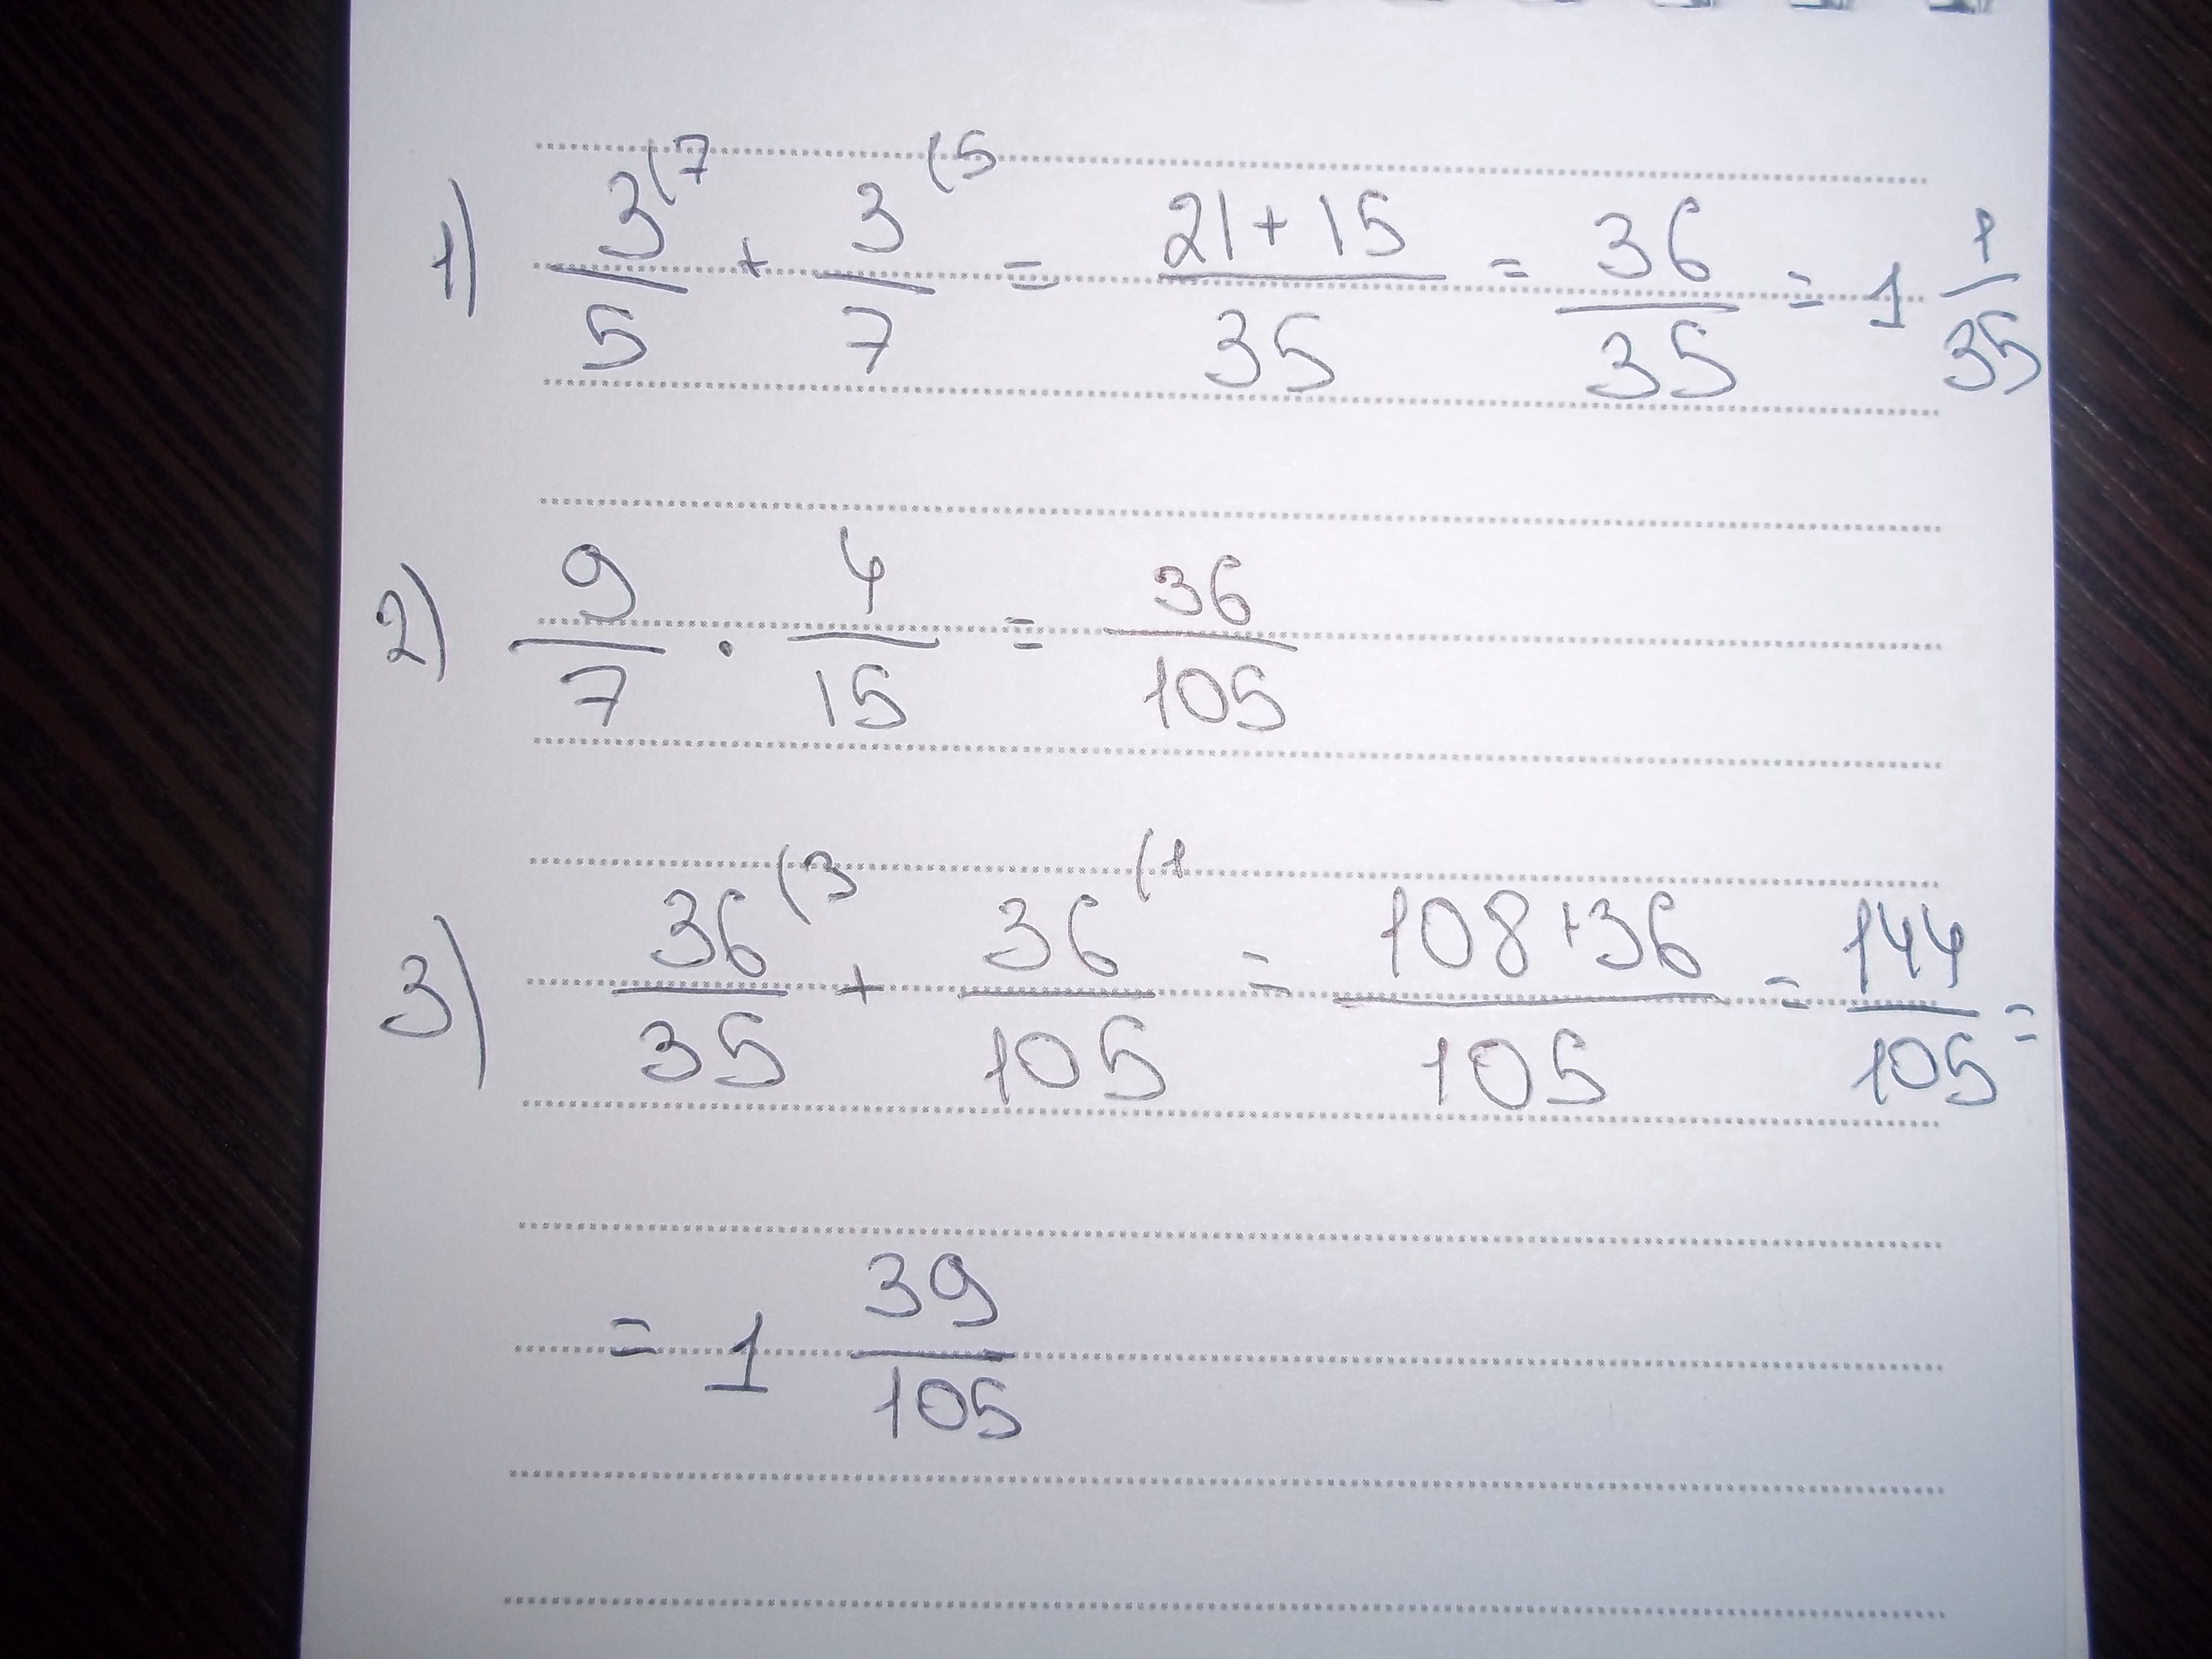 1) 3/5 (7 + 3/7 (5 = 21+15/35 = 36/35 = 1 1/35
2) 9/7 · 4/15 = 36/105
3) 36/35 (3 + 36/105 (1 = 108+36/105 = 144/105 =
= 1 39/105